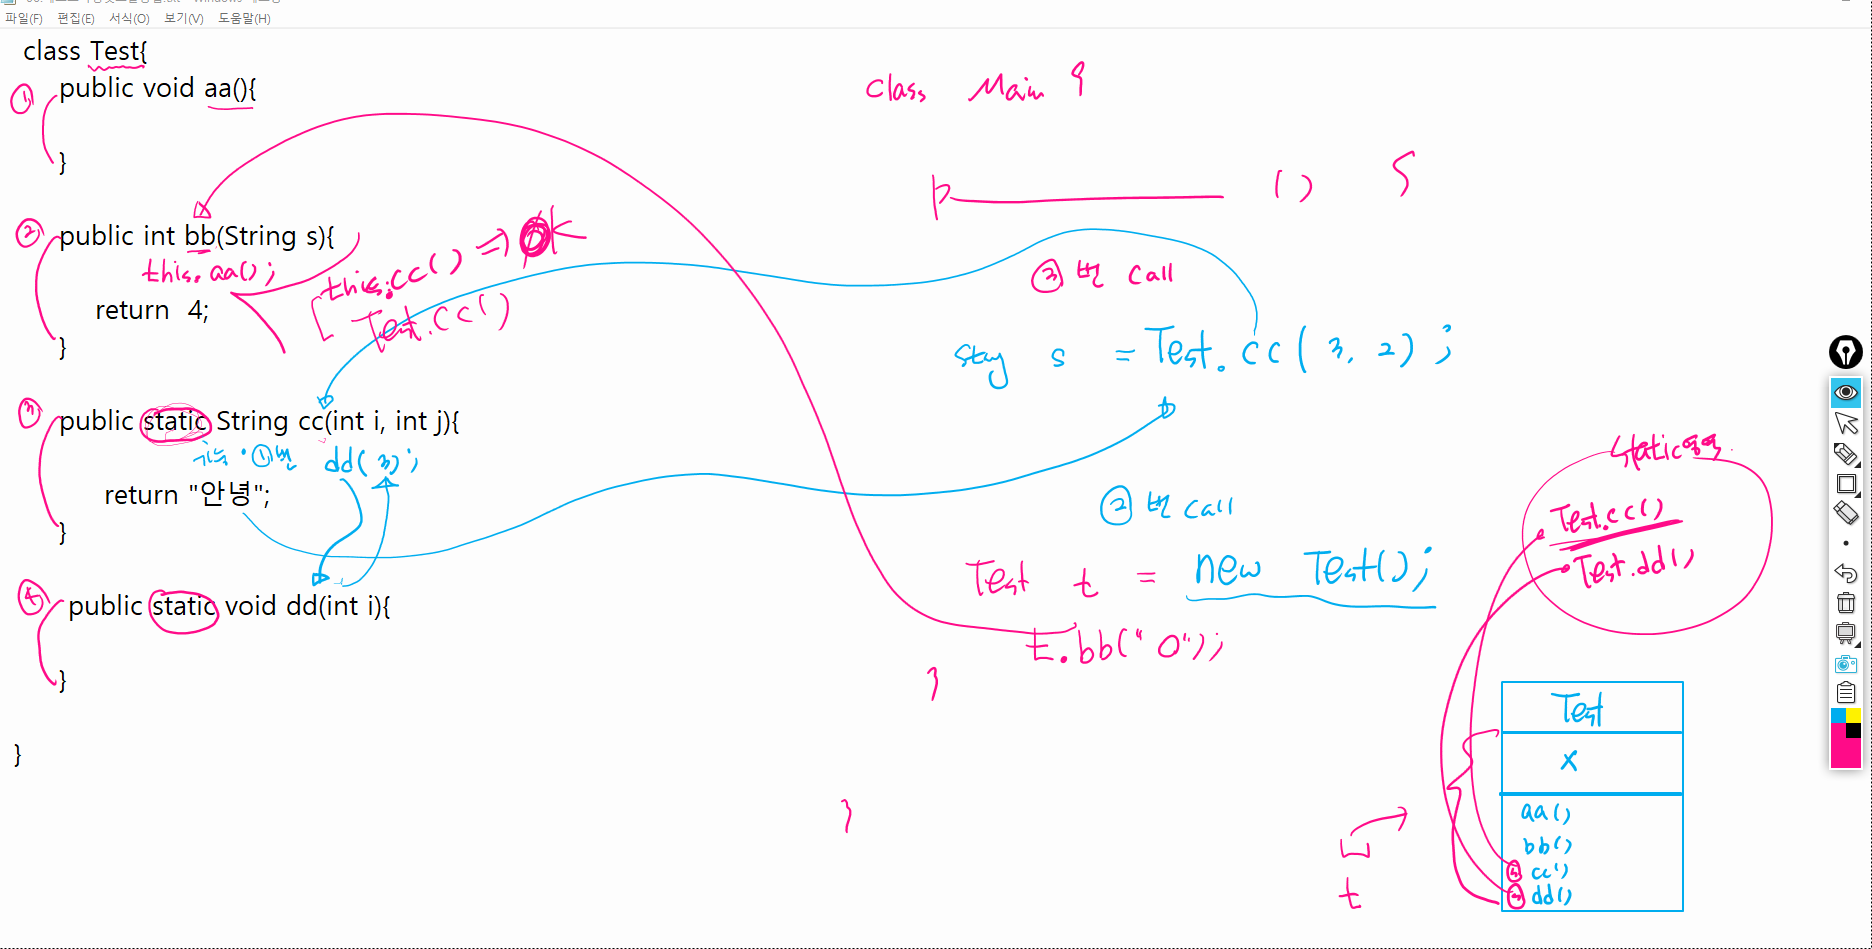 파일(F) 편집(E) 서식(O) 보기(V) 도움말(H)
class Test{
① public void aa(){
}
② public int bb(String s){
this.aa();
this.cc() => OK
return 4;
Test.cc()
}
③ public static String cc(int i, int j){
①번 dd(3);
return "안녕";
}
④ public static void dd(int i){
}
}
class Main {
p ( ) {
③ 번 call
s = Test.cc( 3, 2) ;
② 번 call
Test t = new Test();
t.bb("0");
}
}
static
Test.cc()
Test.dd()
Test
x
aa()
bb()
cc()
dd()
t